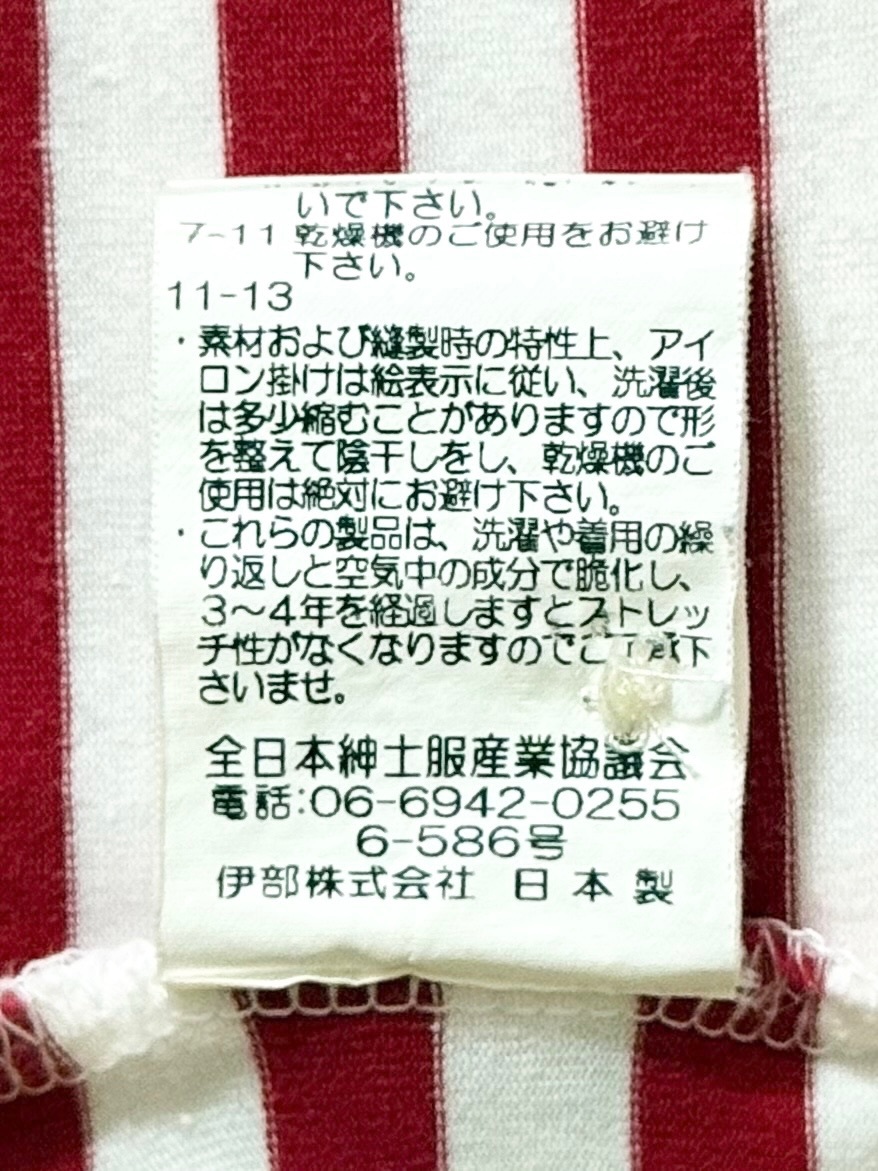 いで下さい。
7-11 乾燥機のご使用をお避け
下さい。
11-13
・素材および縫製時の特性上、アイ
ロン掛けは絵表示に従い、洗濯後
は多少縮むことがありますので形
を整えて陰干しをし、乾燥機のご
使用は絶対にお避け下さい。
・これらの製品は、洗濯や着用の繰
り返しと空気中の成分で脆化し、
3〜4年を経過しますとストレッ
チ性がなくなりますのでご了承下
さいませ。
全日本紳士服産業協議会
電話:06-6942-0255
6-586号
伊部株式会社 日本製